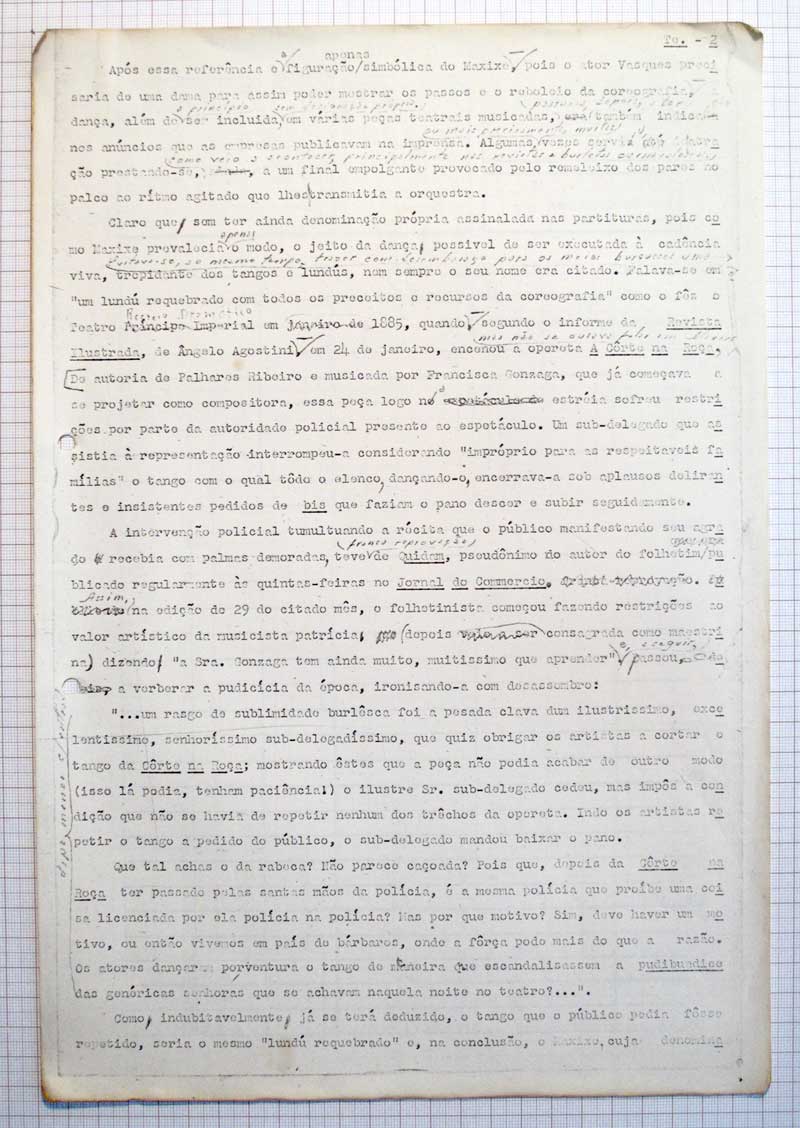 Te. - 2
apenas
Após essa referência e a figuração/simbólica do Maxixe, pois o ator Vasques preci
saria de uma dama para assim poder mostrar os passos e o reboleio da coreografia, a
a princípio sem designação própria,
dança, além de ser incluida, em várias peças teatrais musicadas, era também indicada
ou mais precisamente, muitas
nos anúncios que as empresas publicavam na imprensa. Algumas, vezes servia até de atra
como veio a acontecer, principalmente nas revistas e burletas
ção prestando-se, a um final empolgante provocado pelo remeleixo dos pares no
palco ao rítmo agitado que lhes transmitia a orquestra.
Claro que, sem ter ainda denominação própria assinalada nas partituras, pois co
apenas
mo Maxixe prevalecia o modo, o jeito da dança, possivel de ser executada à cadência
viva, trepidante dos tangos e lundús, nem sempre o seu nome era citado. Falava-se em
"um lundú requebrado com todos os preceitos e recursos da coreografia" como o fêz o
Recreio Dramatico
Teatro Príncipe Imperial em janeiro de 1885, quando, segundo o informe da Revista
Ilustrada, de Ângelo Agostini, em 24 de janeiro, encenou a opereta A Côrte na Roça.
De autoria de Palhares Ribeiro e musicada por Francisca Gonzaga, que já começava a
se projetar como compositora, essa peça logo na espetáculo de estréia sofreu restri
ções por parte da autoridade policial presente ao espetáculo. Um sub-delegado que as
sistia à representação interrompeu-a considerando "impróprio para as respeitaveis fa
mílias" o tango com o qual tôdo o elenco, dançando-o, encerrava-a sob aplausos deliran
tes e insistentes pedidos de bis que faziam o pano descer e subir seguidamente.
A intervenção policial tumultuando a récita que o público manifestando seu agra
franca reprovação
do recebia com palmas demoradas, teve de Quidam, pseudônimo do autor do folhetim/pu
blicado regularmente às quintas-feiras no Jornal do Commercio.
Assim,
na edição de 29 do citado mês, o folhetinista começou fazendo restrições ao
valor artístico da musicista patrícia, (depois consagrada como maestri
e, a seguir,
na) dizendo, "a Sra. Gonzaga tem ainda muito, muitissimo que aprender" passou,
a verberar a pudicícia da época, ironisando-a com desassombro:
"...um rasgo de sublimidade burlêsca foi a pesada clava dum ilustrissimo, exce
lentissimo, senhoríssimo sub-delegadíssimo, que quiz obrigar os artistas a cortar o
tango da Côrte na Roça; mostrando êstes que a peça não podia acabar de outro modo
(isso lá podia, tenham paciência!) o ilustre Sr. sub-delegado cedeu, mas impôs a con
dição que não se havia de repetir nenhum dos trêchos da opereta. Indo os artistas re
petir o tango a pedido do público, o sub-delegado mandou baixar o pano.
Que tal achas o da rabeca? Não parece caçoada? Pois que, depois da Côrte na
Roça ter passado pelas santas mãos da polícia, é a mesma polícia que proíbe uma coi
sa licenciada por ela polícia na polícia? Mas por que motivo? Sim, deve haver um mo
tivo, ou então vivemos em país de bárbaros, onde a fôrça pode mais do que a razão.
Os atores dançaram porventura o tango de maneira que escandalisassem a pudibundice
das genéricas senhoras que se achavam naquela noite no teatro?...".
Como, indubitavelmente, já se terá deduzido, o tango que o público pedia fôsse
repetido, seria o mesmo "lundú requebrado" e, na conclusão, o Maxixe, cuja denomina